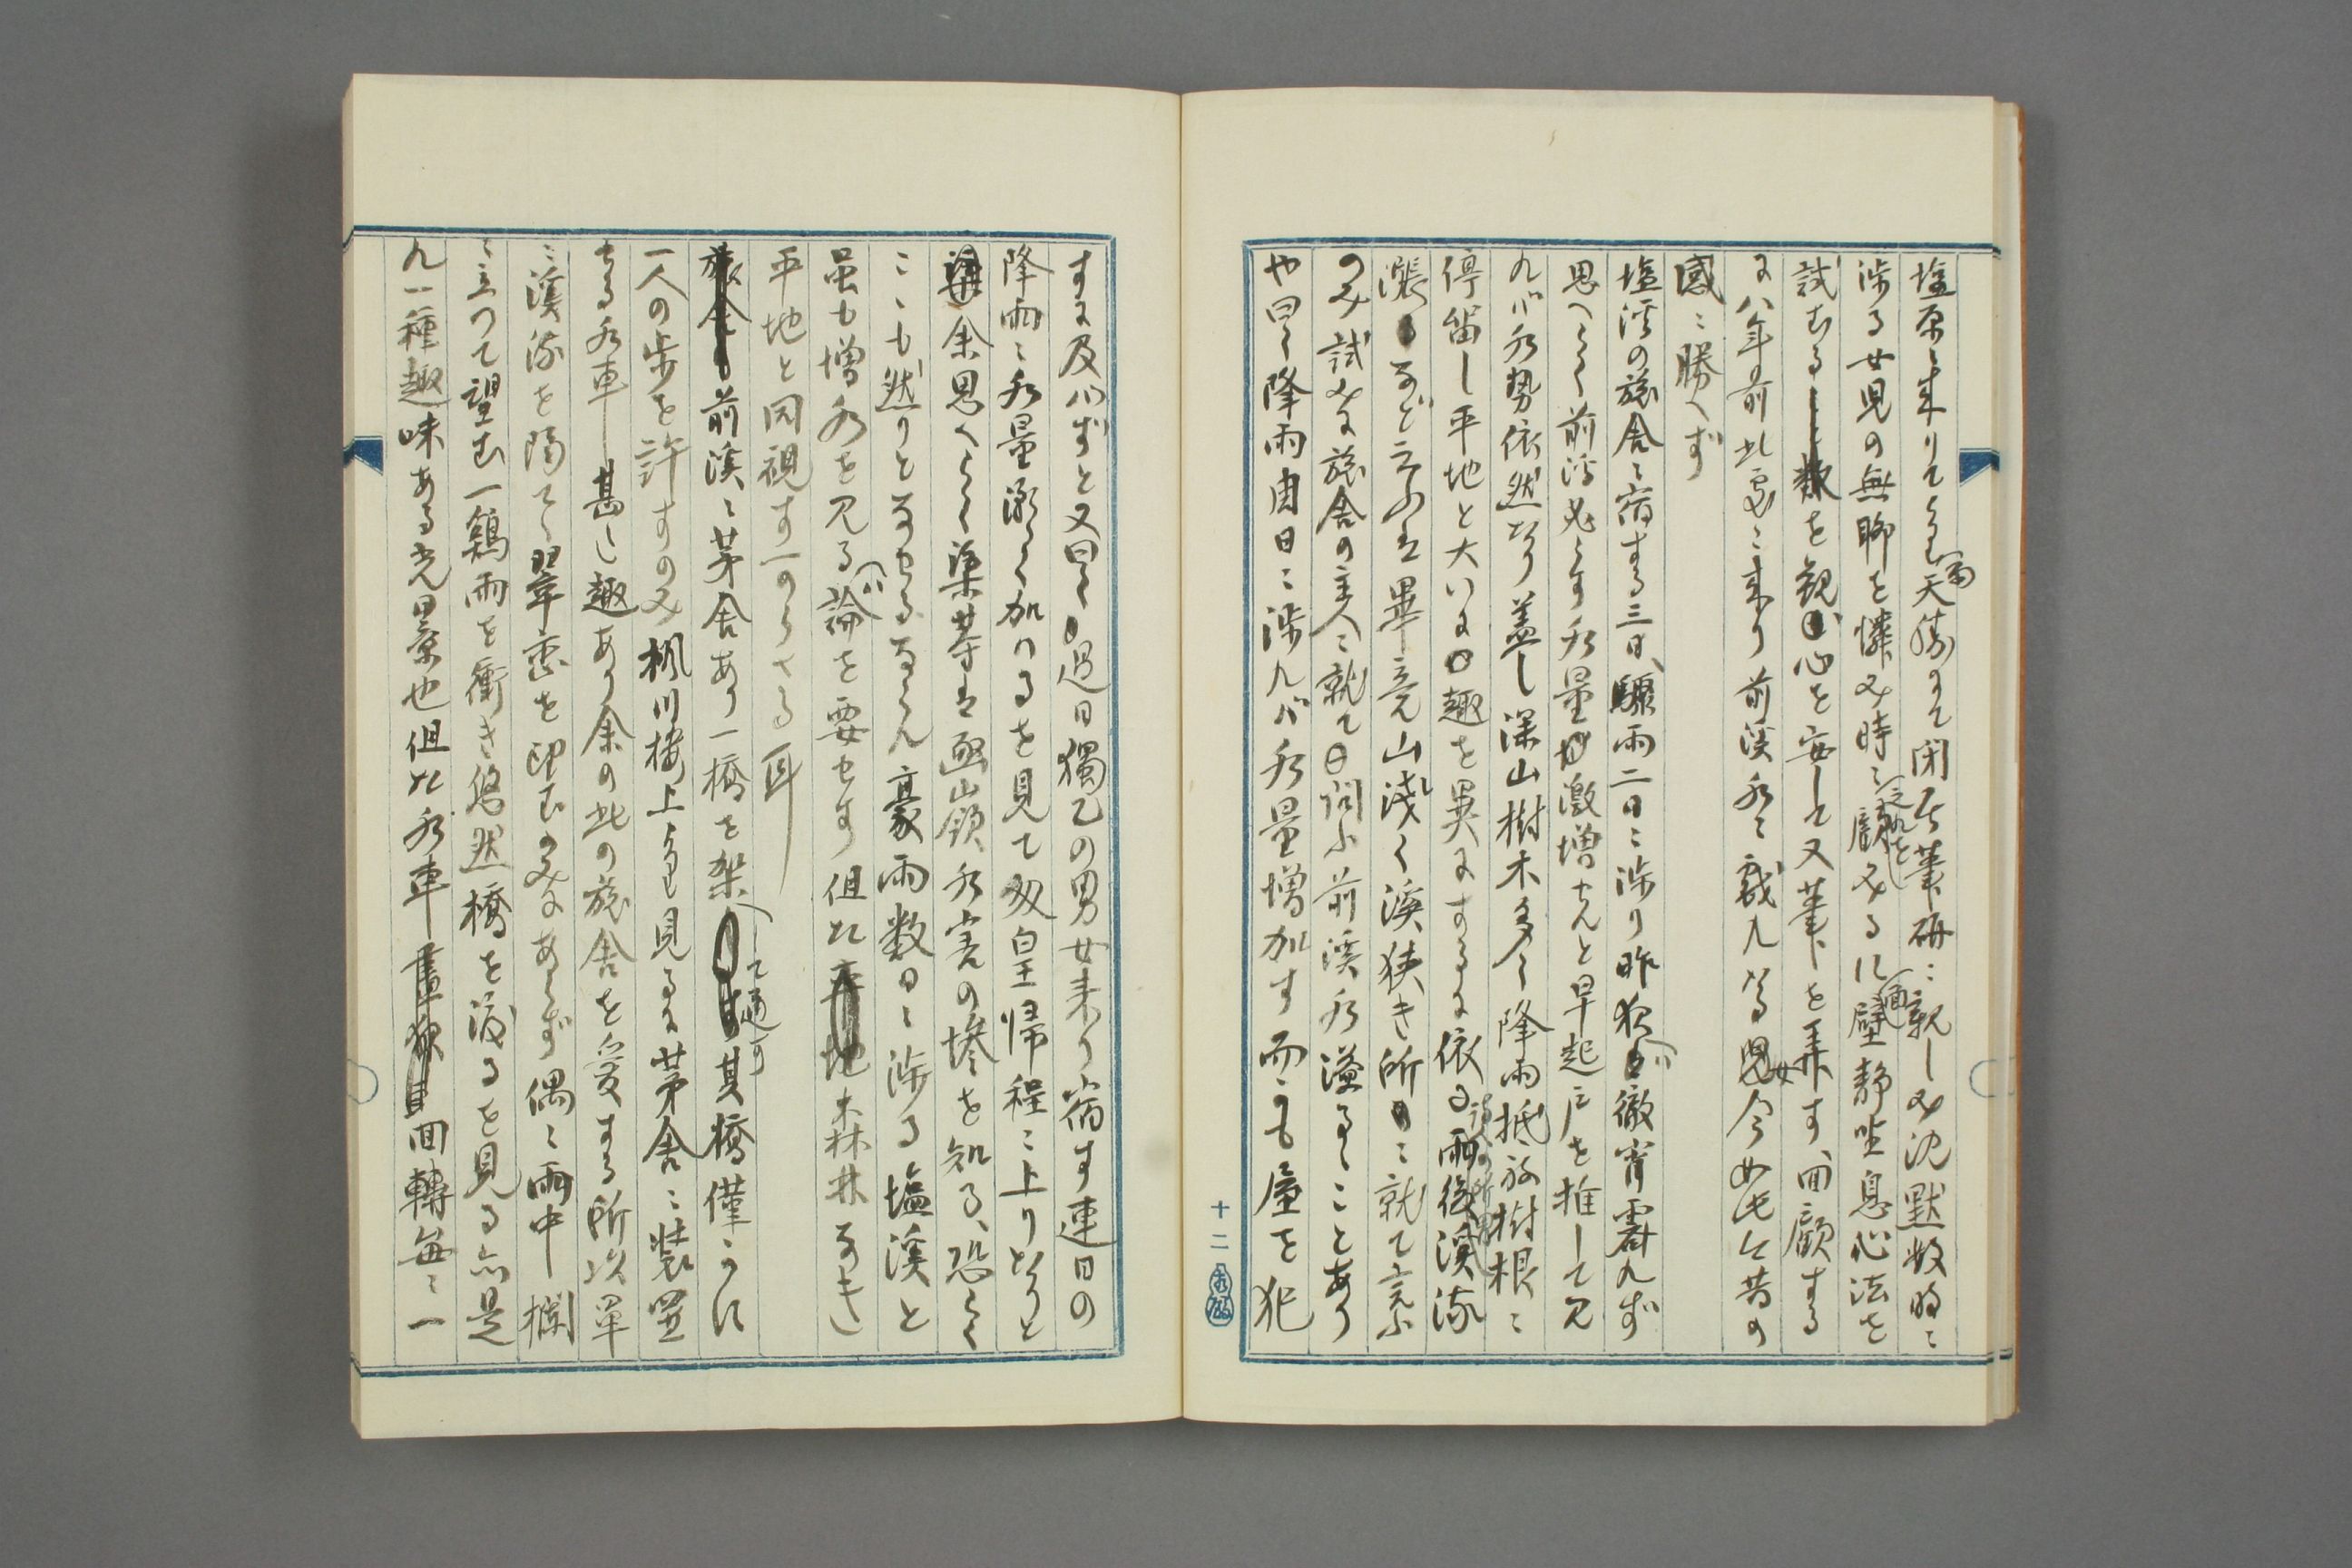 塩原に来りて雨天勝にて閉居筆研に親しみ沈黙数時に
渉る女児の無聊を憐み時に之れを顧みるに面壁静坐息心法を
試むるを観心を安して又筆を弄す、回顧する
に八年前此家に来り前渓水に戯れ居る児女今如此今昔の
感に勝へず
塩渓の旅舎に宿する三日、驟雨二日に渉り昨夜ハ徹宵霽れず
思へらく前渓必らす水量激増せんと早起戸を推して見
れバ水勢依然たり蓋し深山樹木多く降雨抵放樹根に
停留し平地と大いに趣を異にするに依る雨後渓流
漲るなど云ふは畢竟山浅く渓狭き所に就て言ふ
のみ試みに旅舎の主人に就て問ふ前渓水溢るゝことあり
や曰く降雨旬日に渉れバ水量増加す而かも屋を犯
すに及バずと又曰く過日獨乙の男女来り宿す連日の
降雨に水量漸く加ハるを見て匆皇帰程に上りたりと
余思へらく渠等は亟山嶺水害の惨を知る、恐らく
こゝも然りとなせるならん豪雨数日に渉る塩渓と
虽も増水を見るハ論を要せす但た森林なき
平地と同視す可からさる耳
前渓に茅舎あり一橋を架して通す其橋僅かに
一人の歩を許すのみ楓川楼上より見るに茅舎に装置
せる水車甚だ趣あり余の此の旅舎を愛する所以単
に渓流を隔てゝ翠巒を望むのみにあらず偶に雨中欄
に立つて望む一鶏雨を衝き悠然橋を渡るを見る亦是
れ一種趣味ある光景也但た水車回轉毎に一
十二